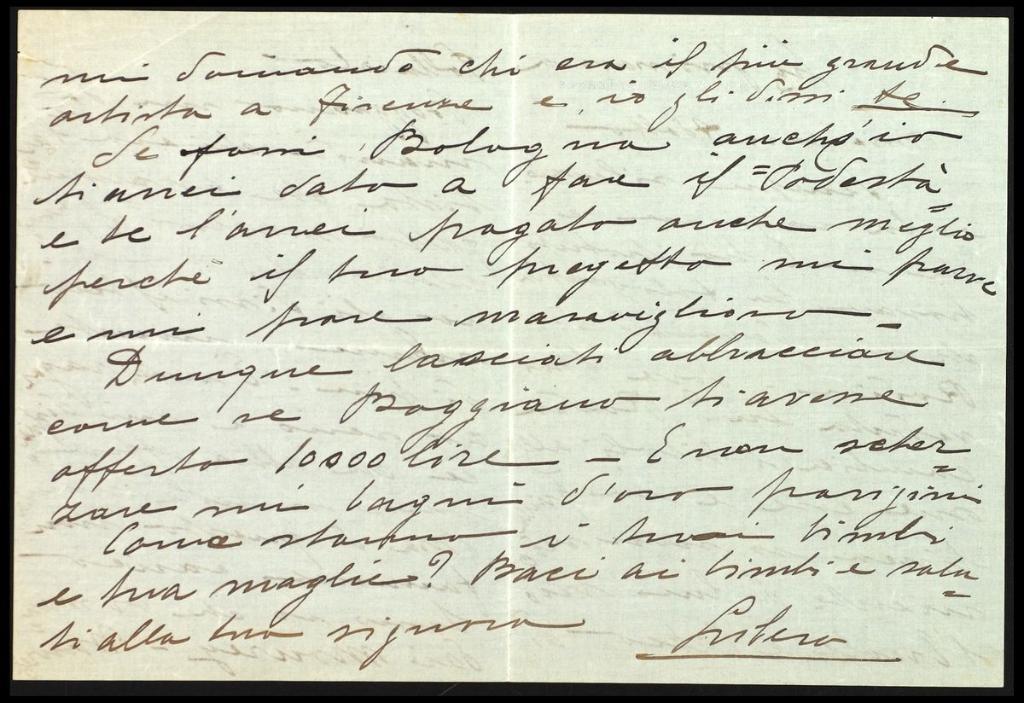 mi domandò chi era il più grande
artista a Firenze e io gli dissi te.
Se fossi Bologna anch'io
ti avrei dato a fare il "Podestà"
e te l'avrei pagato anche meglio
perchè il tuo progetto mi parve
e mi pare maraviglioso –
Dunque lasciati abbracciare
come se Poggiano ti avesse
offerto 10000 lire – E non scher=
zare sui bagni d'oro parigini
Come stanno i tuoi bimbi
e tua moglie? Baci ai bimbi e salu=
ti alla tua signora
Libero